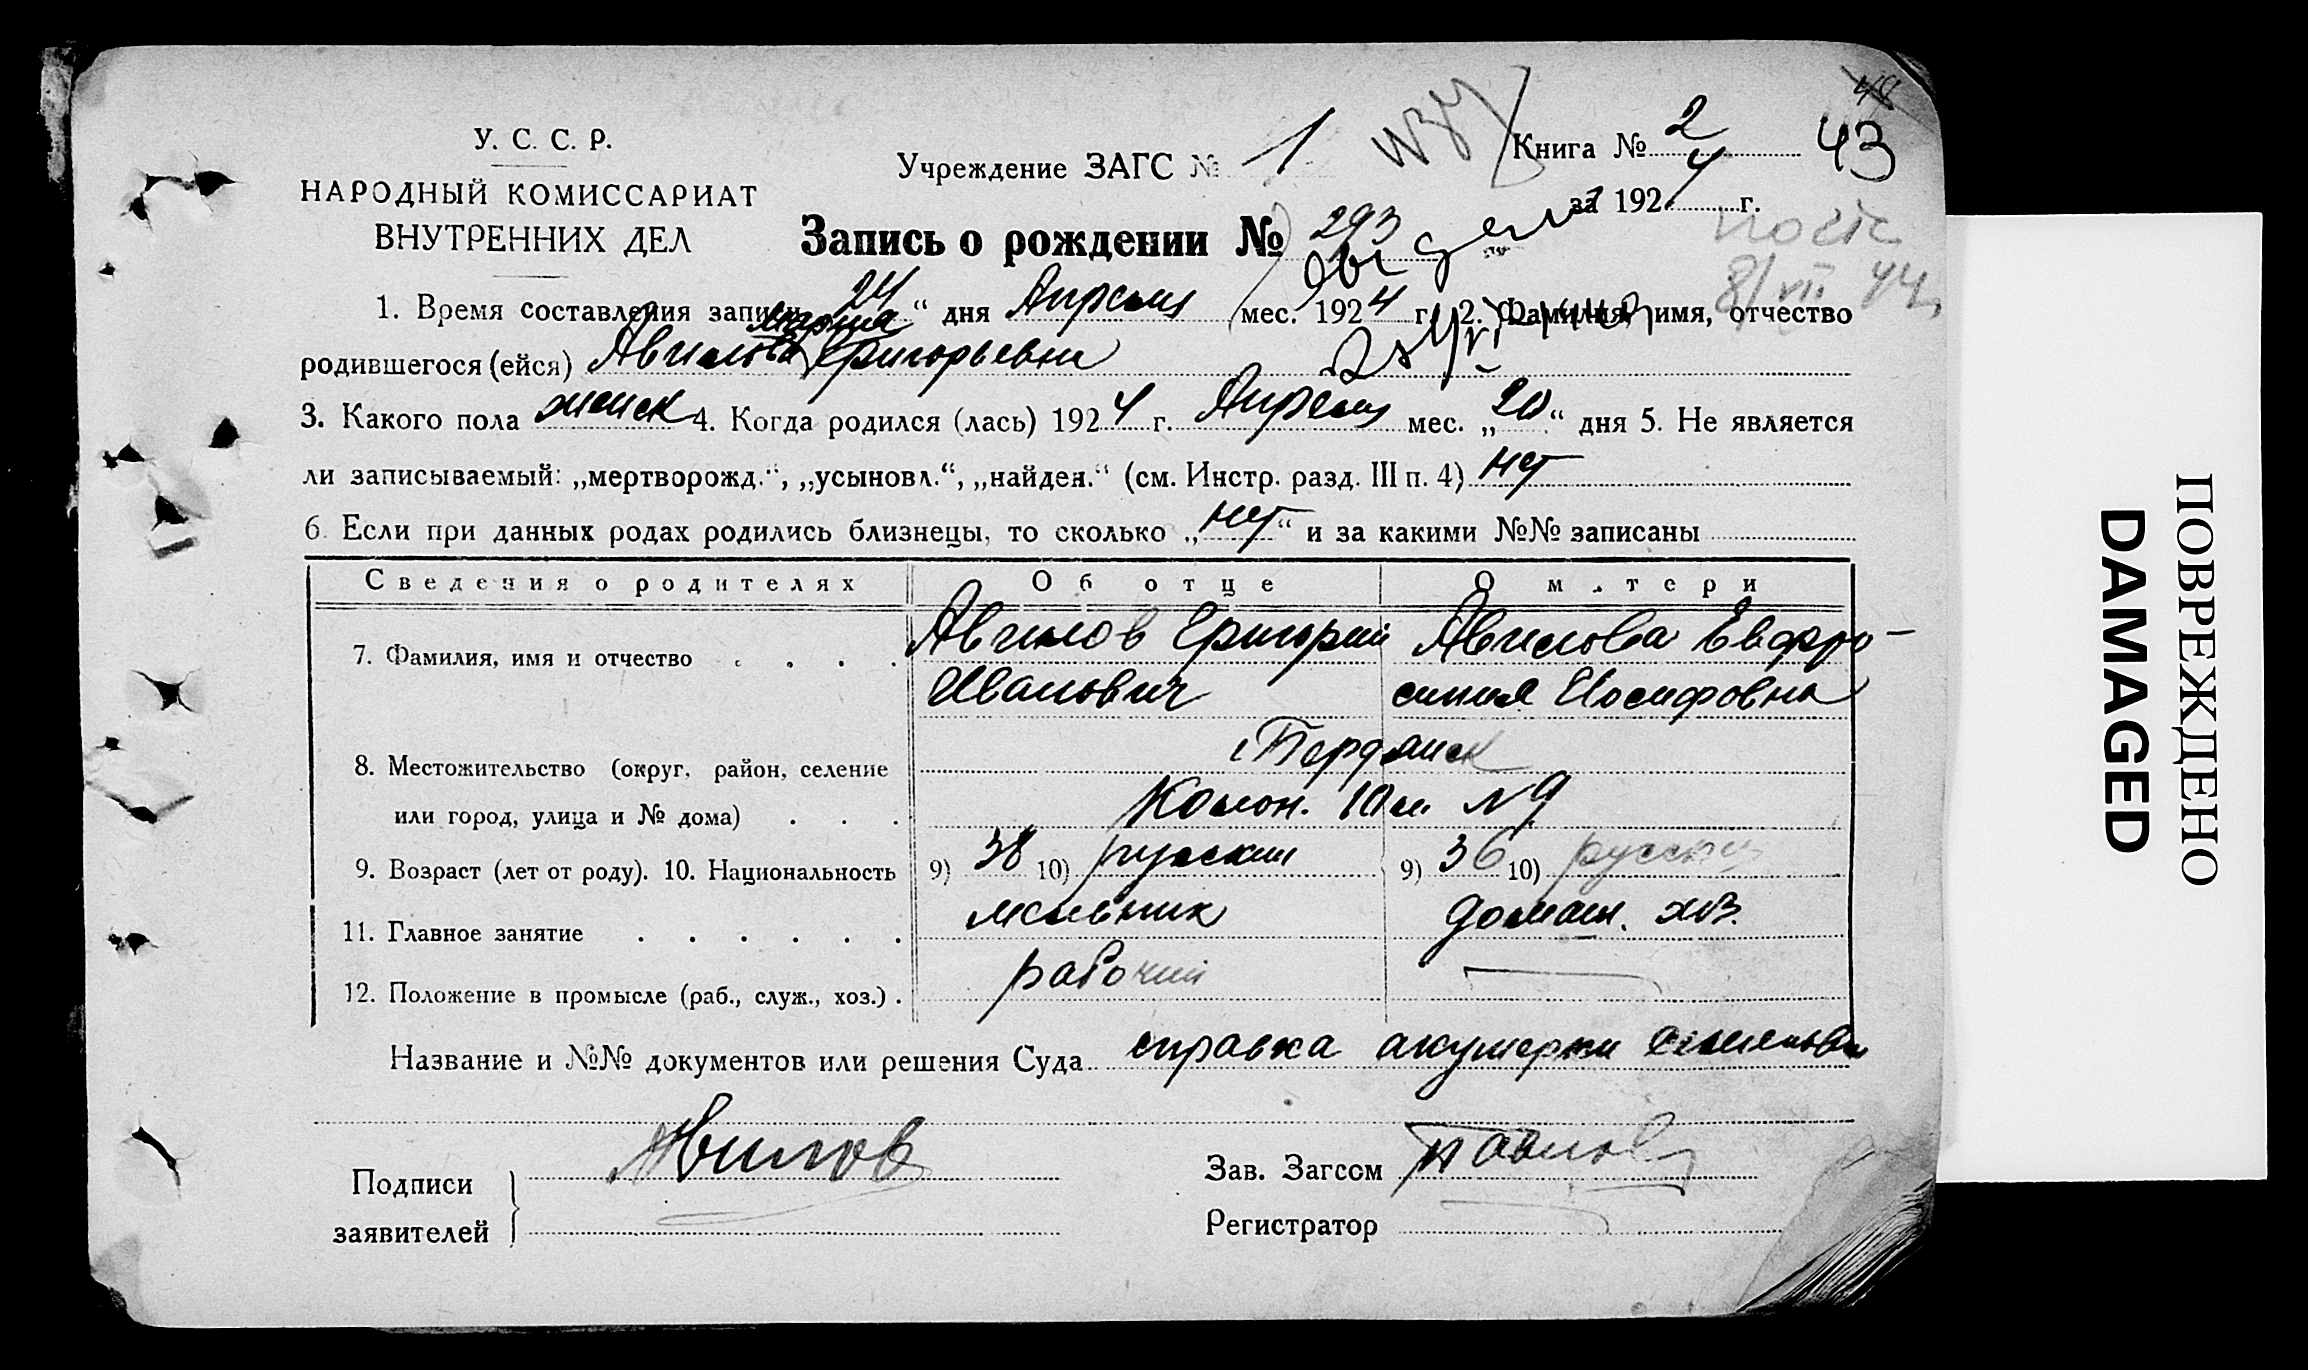 48
У. С. С. Р.
НАРОДНЫЙ КОМИССАРИАТ
ВНУТРЕННИХ ДЕЛ
Учреждение ЗАГС № 1
Книга № 2
43
за 1924 г.
Запись о рождении № 293
8/VII 44
1. Время составления записи 24 “ дня Апреля мес. 1924 г. 2. Фамилия, имя, отчество
Мария
родившегося (ейся) Авилова Григорьевна
3. Какого пола женск 4. Когда родился (лась) 1924 г. Апреля мес. „20“ дня 5. Не является
ли записываемый: „мертворожд.“, „усыновл.“, „найден.“ (см. Инстр. разд. III п. 4) нет
6. Если при данных родах родились близнецы, то сколько „нет“ и за какими №№ записаны
Сведения о родителях Об отце О матери
7. Фамилия, имя и отчество . . . . Авилов Григорий Авилова Евфро-
Иванович синия Иосифовна
8. Местожительство (округ, район, селение Бердянск
или город, улица и № дома) . . . Колон. 10 № 9
9. Возраст (лет от роду). 10. Национальность 9) 38 10) русский 9) 36 10) русск
11. Главное занятие . . . . . . домаш. хоз.
12. Положение в промысле (раб., служ., хоз.) . рабочий
Название и №№ документов или решения Суда справка акушерки
Подписи заявителей Авилов
Зав. Загсом Павлов
Регистратор
ПОВРЕЖДЕНО
DAMAGED